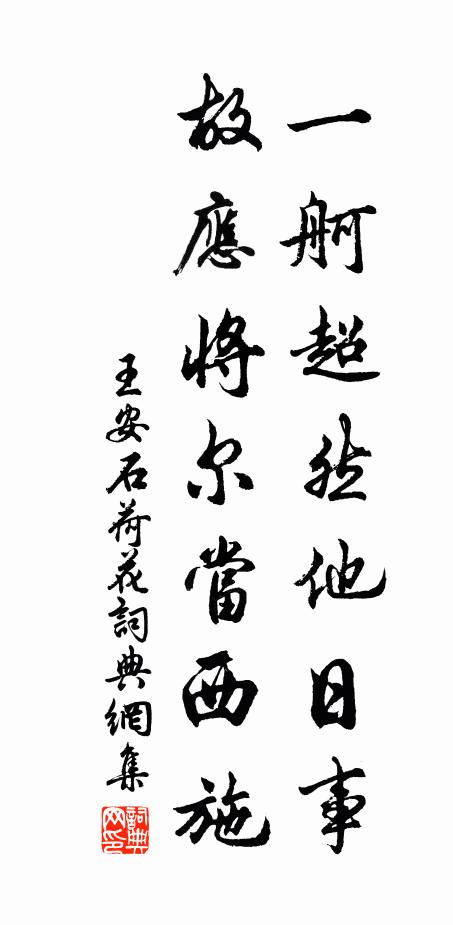 一舸超然他日事
故應將尔當西施
王安石荷花詞典網集
詞典网印